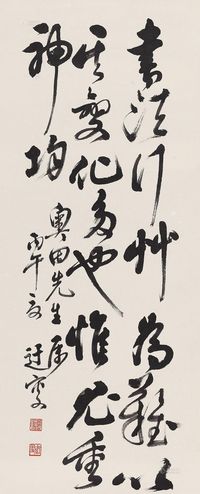 書法行草為難以
其變化多也惟尤重
神均
奧田先生屬
丙午夏